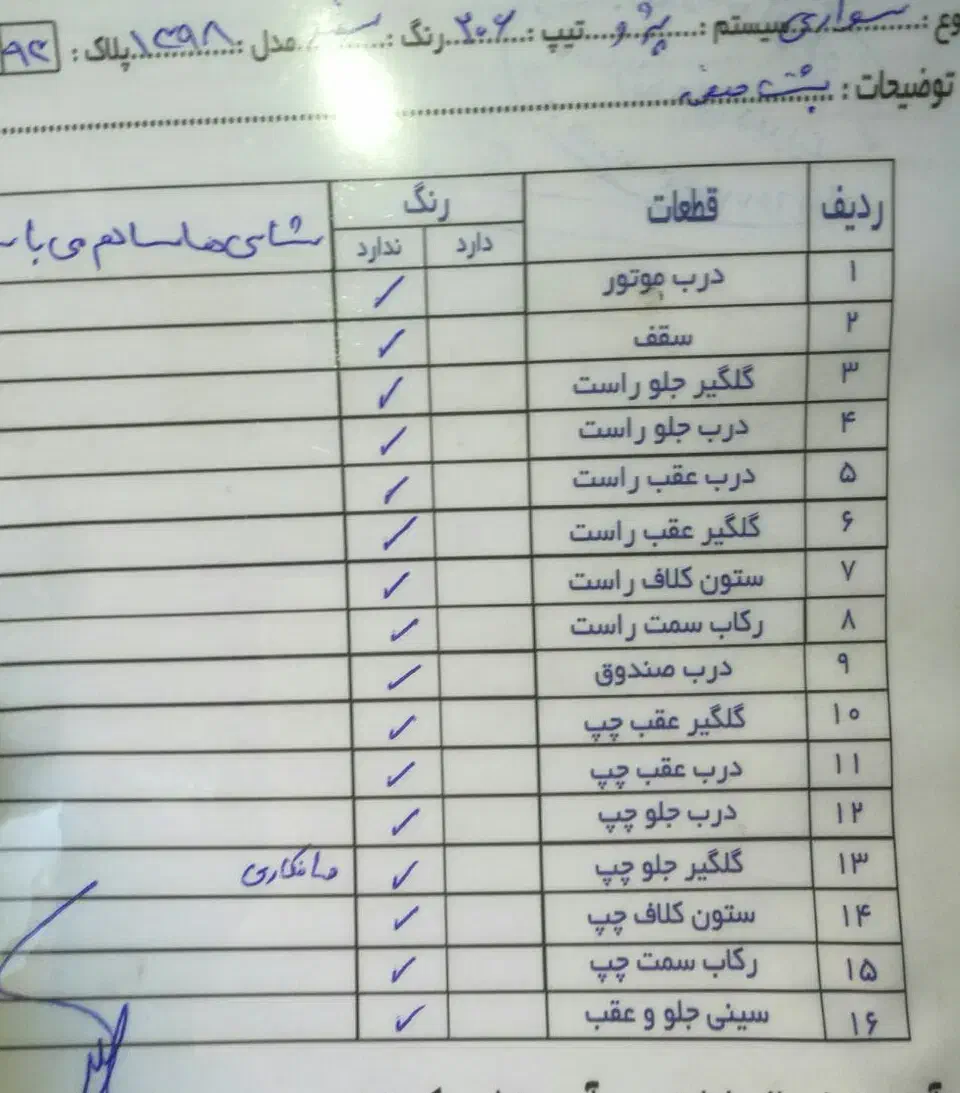 وع : سواری سیستم : پژو تیپ : ۲۰۶ رنگ : مدل : ۱۳۹۸ پلاک : ۹۳
توضیحات : پشت صفحه
ردیف قطعات رنگ
دارد ندارد شاسی ها سالم می با
۱ درب موتور ✓
۲ سقف ✓
۳ گلگیر جلو راست ✓
۴ درب جلو راست ✓
۵ درب عقب راست ✓
۶ گلگیر عقب راست ✓
۷ ستون کلاف راست ✓
۸ رکاب سمت راست ✓
۹ درب صندوق ✓
۱۰ گلگیر عقب چپ ✓
۱۱ درب عقب چپ ✓
۱۲ درب جلو چپ ✓
۱۳ گلگیر جلو چپ ✓ صافکاری
۱۴ ستون کلاف چپ ✓
۱۵ رکاب سمت چپ ✓
۱۶ سینی جلو و عقب ✓